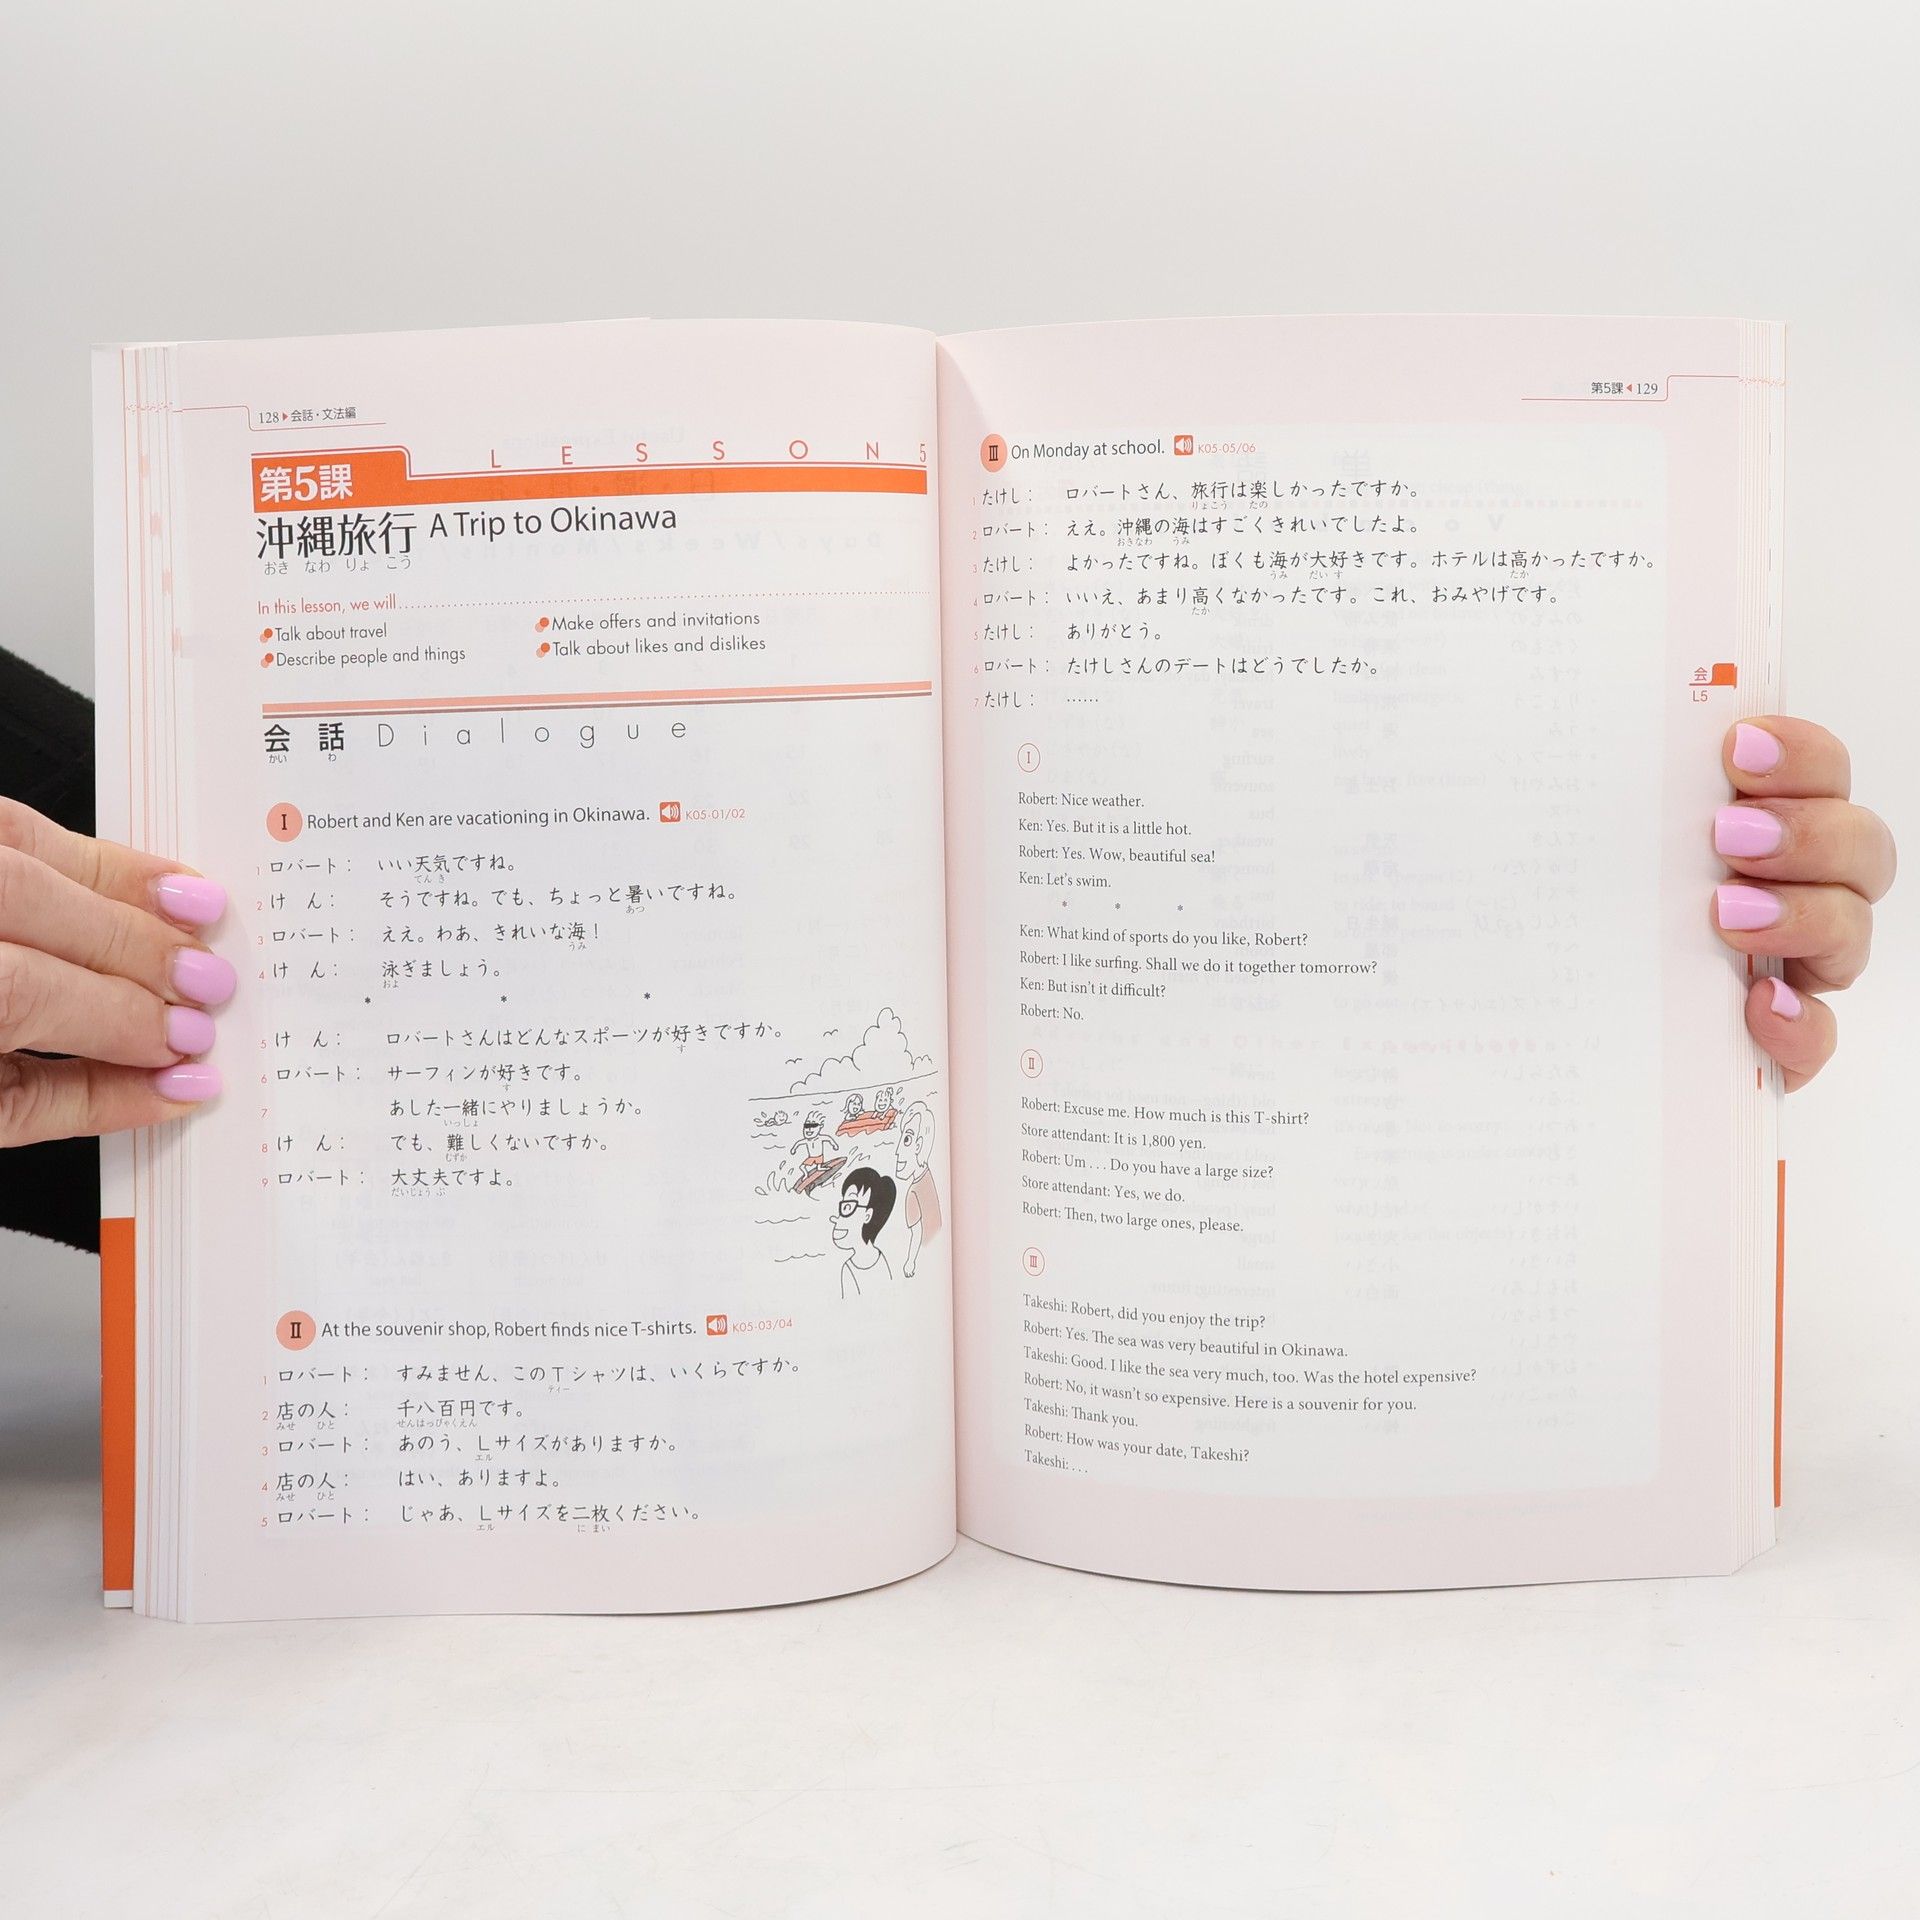 128 ▶ 会話・文法編
LESSON 5
第5課
沖縄旅行 A Trip to Okinawa
おき なわ りょ こう
In this lesson, we will
Talk about travel
Describe people and things
Make offers and invitations
Talk about likes and dislikes
会話 Dialogue
かい わ
Ⅰ Robert and Ken are vacationing in Okinawa. K05-01/02
1 ロバート： いい天気ですね。
てんき
2 けん： そうですね。でも、ちょっと暑いですね。
あつ
3 ロバート： ええ。わあ、きれいな海！
うみ
4 けん： 泳ぎましょう。
およ
* * *
5 けん： ロバートさんはどんなスポーツが好きですか。
す
6 ロバート： サーフィンが好きです。
す
7 あした一緒にやりましょうか。
いっしょ
8 けん： でも、難しくないですか。
むずか
9 ロバート： 大丈夫ですよ。
だいじょうぶ
Ⅱ At the souvenir shop, Robert finds nice T-shirts. K05-03/04
1 ロバート： すみません、このTシャツは、いくらですか。
ティー
2 店の人： 千八百円です。
みせ ひと せんはっぴゃくえん
3 ロバート： あのう、Lサイズがありますか。
エル
4 店の人： はい、ありますよ。
みせ ひと
5 ロバート： じゃあ、Lサイズを二枚ください。
エル に まい
第5課 ◀ 129
Ⅲ On Monday at school. K05-05/06
1 たけし： ロバートさん、旅行は楽しかったですか。
りょこう たの
2 ロバート： ええ。沖縄の海はすごくきれいでしたよ。
おきなわ うみ
3 たけし： よかったですね。ぼくも海が大好きです。ホテルは高かったですか。
うみ だい す たか
4 ロバート： いいえ、あまり高くなかったです。これ、おみやげです。
たか
5 たけし： ありがとう。
6 ロバート： たけしさんのデートはどうでしたか。
7 たけし： ……
会
L5
Ⅰ
Robert: Nice weather.
Ken: Yes. But it is a little hot.
Robert: Yes. Wow, beautiful sea!
Ken: Let's swim.
* * *
Ken: What kind of sports do you like, Robert?
Robert: I like surfing. Shall we do it together tomorrow?
Ken: But isn't it difficult?
Robert: No.
Ⅱ
Robert: Excuse me. How much is this T-shirt?
Store attendant: It is 1,800 yen.
Robert: Um . . . Do you have a large size?
Store attendant: Yes, we do.
Robert: Then, two large ones, please.
Ⅲ
Takeshi: Robert, did you enjoy the trip?
Robert: Yes. The sea was very beautiful in Okinawa.
Takeshi: Good. I like the sea very much, too. Was the hotel expensive?
Robert: No, it wasn't so expensive. Here is a souvenir for you.
Takeshi: Thank you.
Robert: How was your date, Takeshi?
Takeshi: . . .